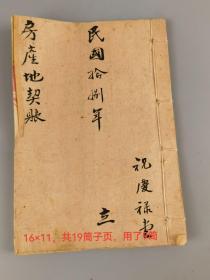 民國拾捌年
房產地契賬
立
祝慶祿書
16×11，共19筒子页，用了8筒